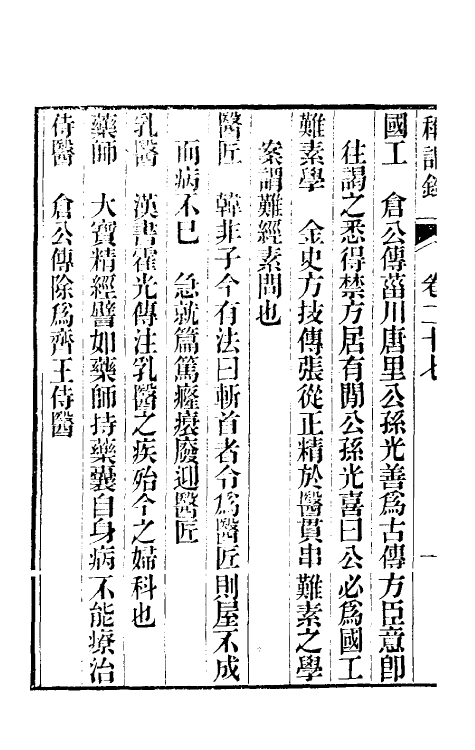 稱謂錄 卷二十七 一
國工　倉公傳菑川唐里公孫光善爲古傳方臣意卽
往謁之悉得禁方居有閒公孫光喜曰公必爲國工
難素學　金史方技傳張從正精於醫貫串難素之學
案謂難經素問也
醫匠　韓非子今有法曰斬首者令爲醫匠則屋不成
而病不已　急就篇篤癃𤸬廢迎醫匠
乳醫　漢書霍光傳注乳醫之疾殆今之婦科也
藥師　大寶精經譬如藥師持藥囊自身病不能療治
侍醫　倉公傳除爲齊王侍醫